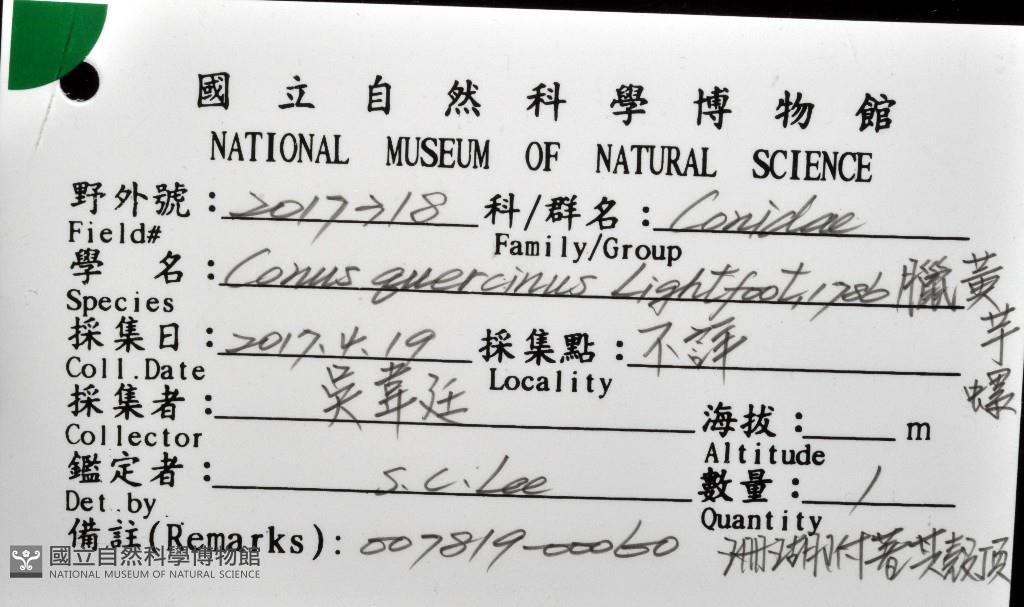 國立自然科學博物館
NATIONAL MUSEUM OF NATURAL SCIENCE
野外號: 2017→18 科/群名: Conidae
Field# Family/Group
學 名: Conus quercinus Lightfoot, 1786 臘黃芋螺
Species
採集日: 2017.4.19 採集點: 不詳
Coll.Date Locality
採集者: 吳韋廷 海拔: m
Collector Altitude
鑑定者: S.C.Lee 數量: 1
Det.by Quantity
備註(Remarks): 007819-00060 珊瑚附著其殼頂
國立自然科學博物館
NATIONAL MUSEUM OF NATURAL SCIENCE